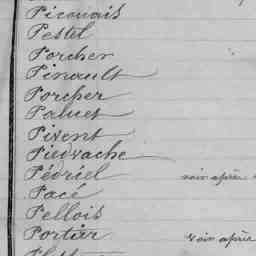 Picouais
Pestel
Porcher
Pinault
Porcher
Paluet
Pivent
Piedvache
Pédriel voir après
Pacé
Pellois
Portier voir après